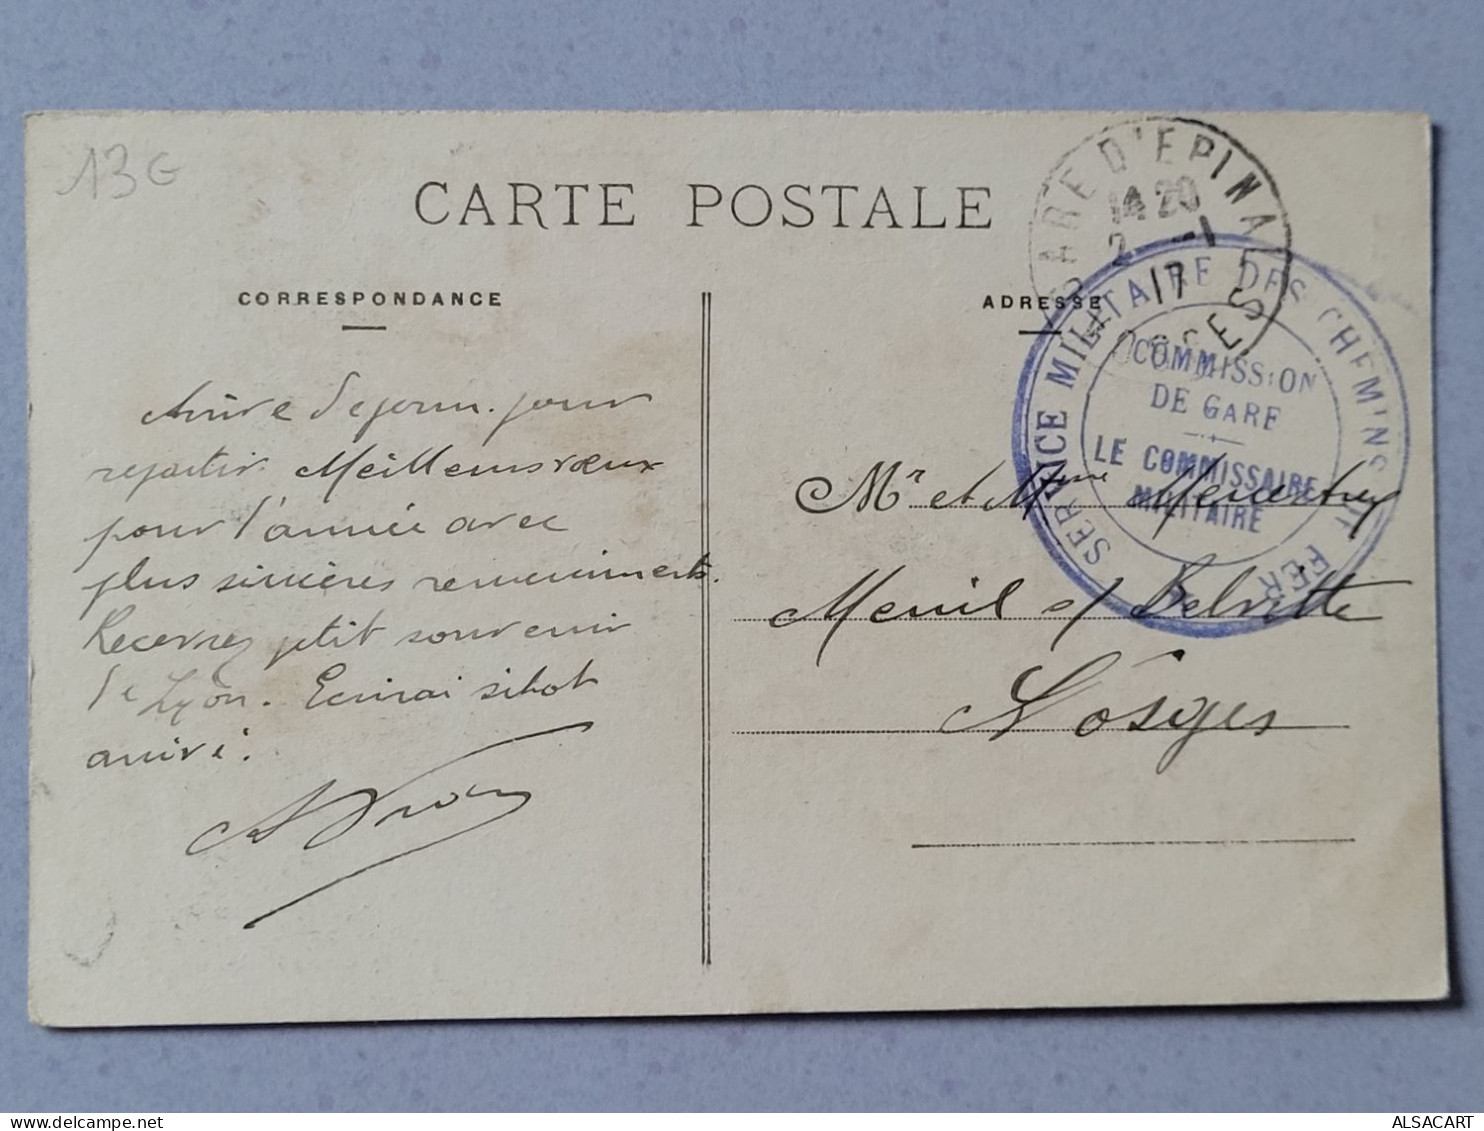 13G
CARTE POSTALE
CORRESPONDANCE
ADRESSE
GARE D'EPINAL
14 20
2 -1
17
VOSGES
SERVICE MILITAIRE DES CHEMINS DE FER
COMMISSION
DE GARE
LE COMMISSAIRE
MILITAIRE
Arrive d'ejourn. pour
repartir. Meilleurs vœux
pour l'année avec
plus sincères remerciments.
Recevez petit souvenir
de Lyon. Ecrirai sitot
arrivé.
Mr et Mme
Menil s/ Belvitte
Vosges
ALSACART